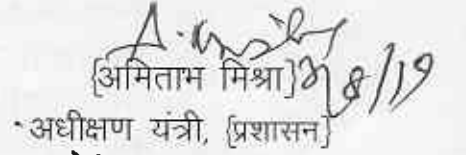 {अमिताभ मिश्रा}
अधीक्षण यंत्री, {प्रशासन}